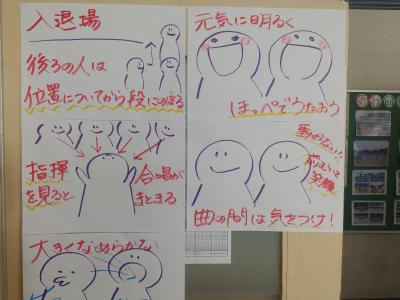 入退場
後ろの人は
位置についてから段にのぼる
元気に明るく
ほっぺでうたおう
指揮
を見ると
合唱が
まとまる
動かない!!
前むいて
笑顔
曲の間は気をつけ!
大きくなめらかな